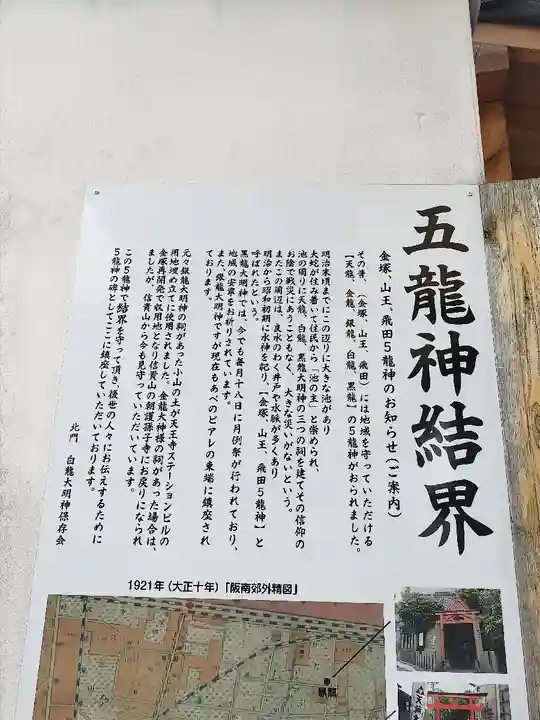 五龍神結界
金塚、山王、飛田5龍神のお知らせ(ご案内)
その昔、(金塚、山王、飛田)には地域を守っていただける
【天龍、金龍、銀龍、白龍、黒龍】の5龍神がおられました。
明治末頃までにこの辺りに大きな池があり
大蛇が住み着いて住民から「池の主」と崇められ、
池の周りに天龍、白龍、黒龍大明神の三つの祠を建てその信仰の
お陰で戦災にあうこともなく、大きな災いがないという。
またこの周辺は、良水のわく井戸や水脈が多くあり
明治から昭和初期に水神を祀り、【金塚、山王、飛田5龍神】と
呼ばれたという。
黒龍大明神では、今でも毎月十八日に月例祭が行われており、
地域の安寧をお祈りされています。
また、銀龍大明神ですが現在もあべのピアレの東端に鎮座され
ております。
元々銀龍大明神の祠があった小山の土が天王寺ステーションビルの
用地埋め立てに使用されました。金龍大神様の祠があった場合は、
金塚再開発で収用地となり信貴山の朝護孫子寺にお戻りになられ
ましたが、信貴山から今も見守っていただいています。
この5龍神で結界を守って頂き、後世の人々にお伝えするために
5龍神の碑としてここに鎮座していただいております。
北門 白龍大明神保存会
1921年(大正十年)「阪南郊外精図」
黒龍